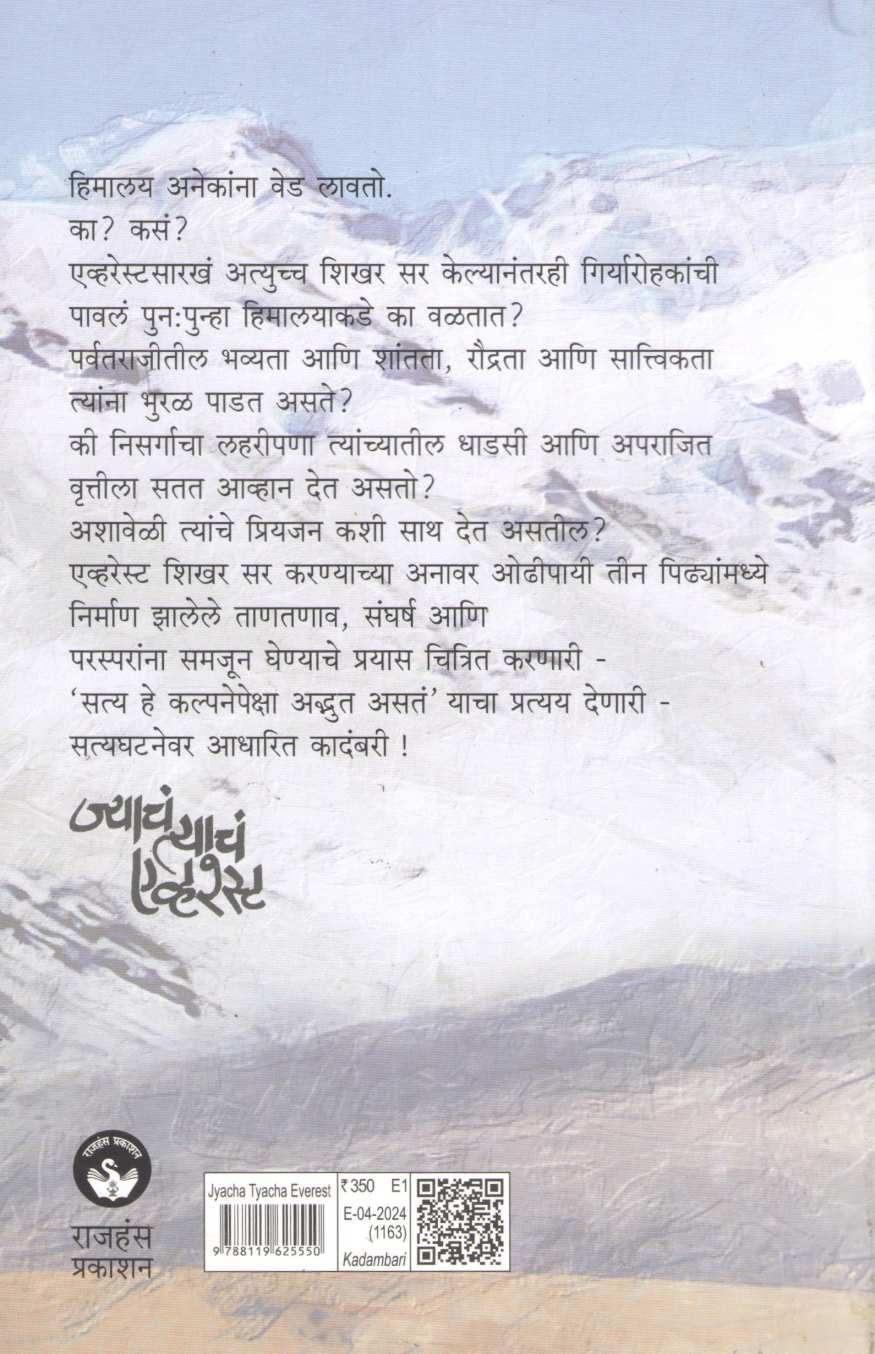 हिमालय अनेकांना वेड लावतो.
का? कसं?
एव्हरेस्टसारखं अत्युच्च शिखर सर केल्यानंतरही गिर्यारोहकांची
पावलं पुन:पुन्हा हिमालयाकडे का वळतात?
पर्वतराजीतील भव्यता आणि शांतता, रौद्रता आणि सात्त्विकता
त्यांना भुरळ पाडत असते?
की निसर्गाचा लहरीपणा त्यांच्यातील धाडसी आणि अपराजित
वृत्तीला सतत आव्हान देत असतो?
अशावेळी त्यांचे प्रियजन कशी साथ देत असतील?
एव्हरेस्ट शिखर सर करण्याच्या अनावर ओढीपायी तीन पिढ्यांमध्ये
निर्माण झालेले ताणतणाव, संघर्ष आणि
परस्परांना समजून घेण्याचे प्रयास चित्रित करणारी -
‘सत्य हे कल्पनेपेक्षा अद्भुत असतं’ याचा प्रत्यय देणारी -
सत्यघटनेवर आधारित कादंबरी !
ज्याचं
त्याचं
एव्हरेस्ट
राजहंस प्रकाशन
राजहंस
प्रकाशन
Jyacha Tyacha Everest
9 788119 625550
₹ 350 E1
E-04-2024
(1163)
Kadambari